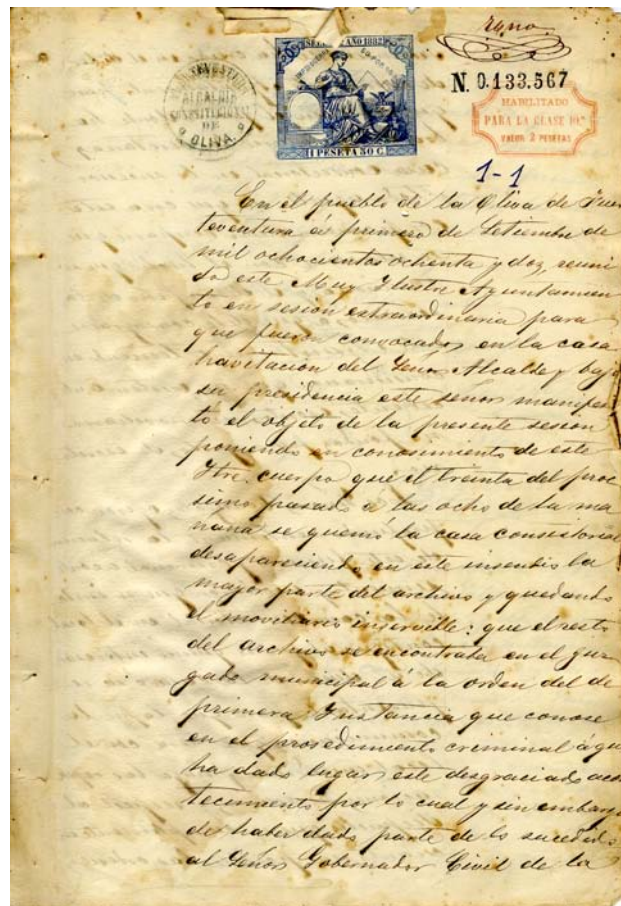 SELLO 10º AÑO 1882
1 PESETA 50 C.
ALCALDIA
CONSTITUCIONAL
DE
OLIVA.
N. 0.133.567
HABILITADO
PARA LA CLASE 10ª
VALOR 2 PESETAS
1-1
En el pueblo de la Oliva de Fuer
teventura á primero de Setiembre de
mil ochocientos ochenta y dos, reuni
do este Muy Ilustre Ayuntamien
to en sesion extraordinaria para
que fueron convocados en la casa
havitacion del Señor Alcalde y bajo
su presidencia este señor manifes
tó el objeto de la presente sesion
poniendo en conosimiento de este
Iltre. cuerpo que el treinta del proc
simo pasado á las ocho de la ma
ñana se quemó la casa consistorial
desapareciendo en este insendio la
mayor parte del archivo y quedando
el moviliario inservible: que el resto
del archivo se encontraba en el juz
gado municipal á la orden del de
primera Instancia que conose
en el prosedimiento criminal á que
ha dado lugar este desgraciado acon
tecimiento por lo cual y sin embargo
de haber dado parte de lo sucedido
al Señor Gobernador Civil de la